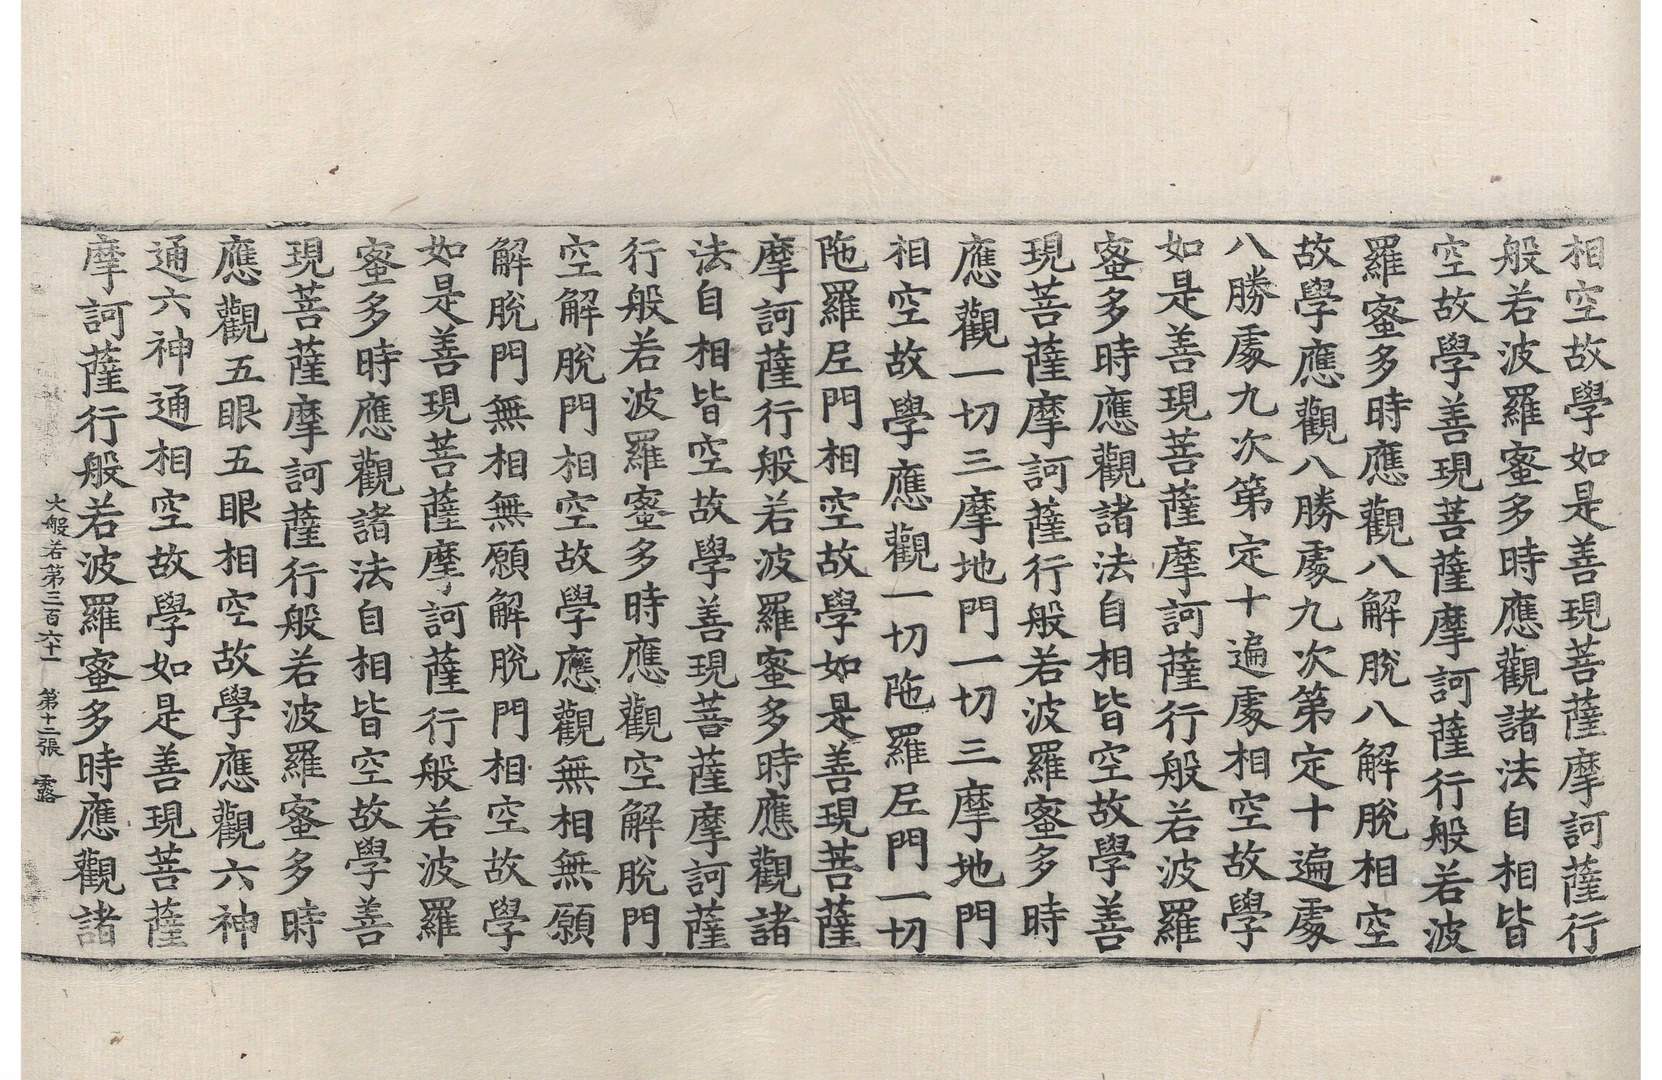 相空故學如是善現菩薩摩訶薩行
般若波羅蜜多時應觀諸法自相皆
空故學善現菩薩摩訶薩行般若波
羅蜜多時應觀八解脫八解脫相空
故學應觀八勝處九次第定十遍處
八勝處九次第定十遍處相空故學
如是善現菩薩摩訶薩行般若波羅
蜜多時應觀諸法自相皆空故學善
現菩薩摩訶薩行般若波羅蜜多時
應觀一切三摩地門一切三摩地門
相空故學應觀一切陁羅尼門一切
陁羅尼門相空故學如是善現菩薩
摩訶薩行般若波羅蜜多時應觀諸
法自相皆空故學善現菩薩摩訶薩
行般若波羅蜜多時應觀空解脫門
空解脫門相空故學應觀無相無願
解脫門無相無願解脫門相空故學
如是善現菩薩摩訶薩行般若波羅
蜜多時應觀諸法自相皆空故學善
現菩薩摩訶薩行般若波羅蜜多時
應觀五眼五眼相空故學應觀六神
通六神通相空故學如是善現菩薩
摩訶薩行般若波羅蜜多時應觀諸
大般若第三百六十一 第十二張 露